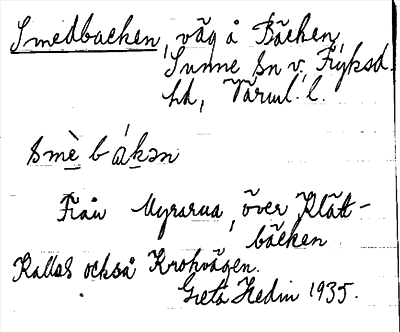 Smedbacken, väg å Bäcken,
Sunne sn v. Fryksd.
hd, Värml. l.
smè̱báḵən
Från Myrarna, över Klätt-
bäcken.
Kallas också Krokvägen.
Greta Hedin 1935.